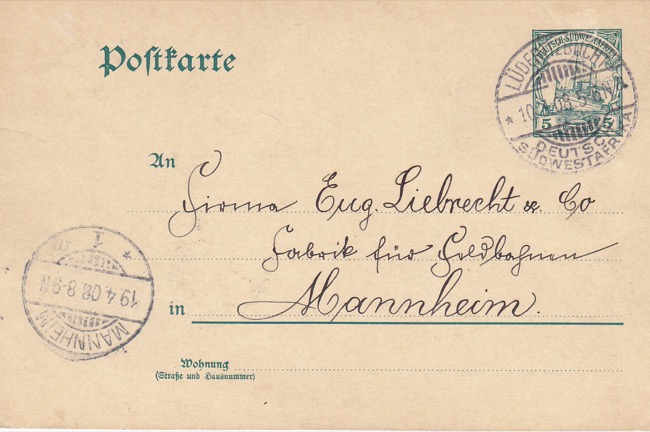 Postkarte
DEUTSCH-SÜDWESTAFRIKA
5 5
LÜDERITZBUCHT
* 10.4.08.5-6N *
DEUTSCH-
SÜDWESTAFRIKA
An
Firma Eug. Liebrecht & Co
Fabrik für Feldbahnen
in Mannheim.
* 1 *
19.4.08.8-9N
MANNHEIM
Wohnung
(Straße und Hausnummer)